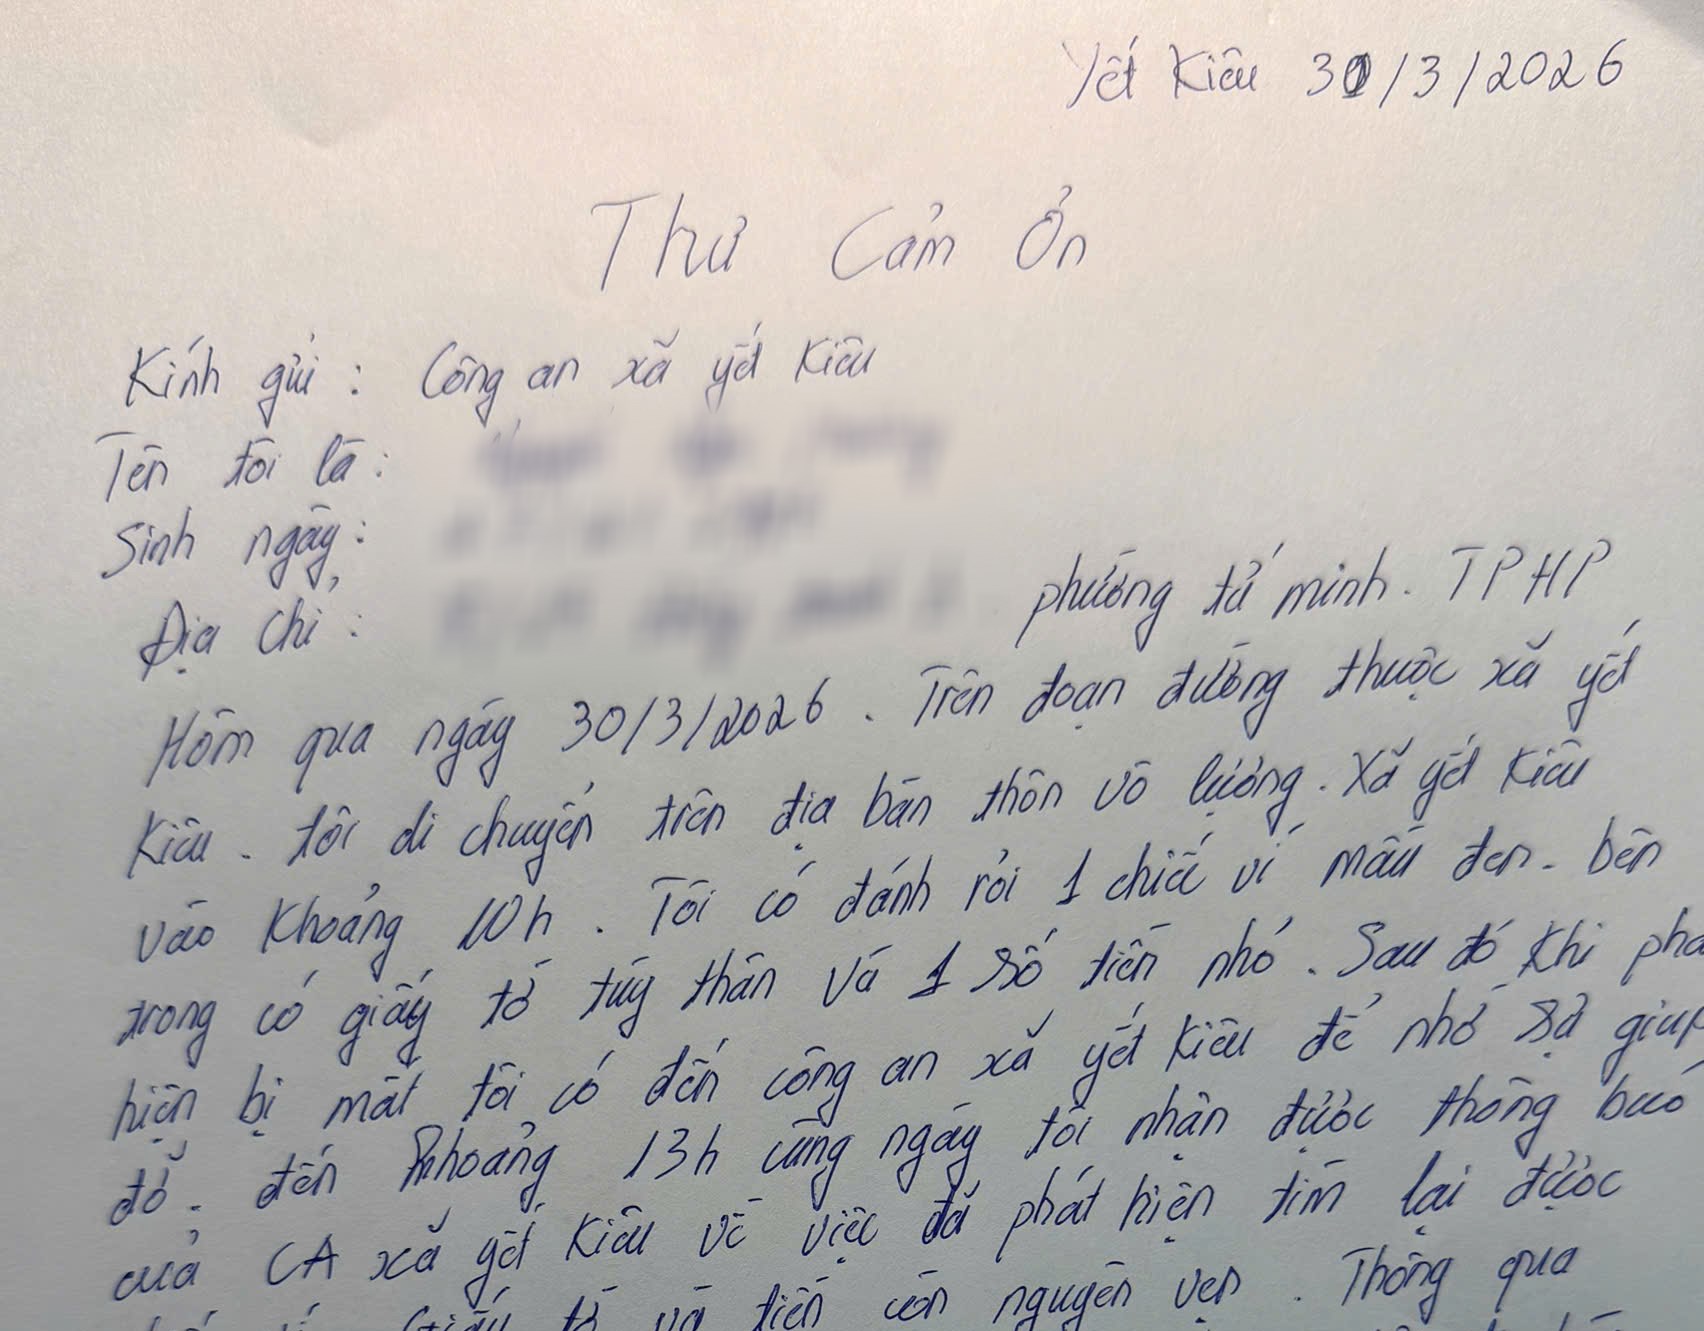 Yết Kiêu 31/3/2026
Thư Cảm Ơn
Kính gửi : Công an xã yết Kiêu
Tên tôi là :
Sinh ngày :
Địa chỉ : phường tứ minh. TPHP
Hôm qua ngày 30/3/2026. Trên đoạn đường thuộc xã yết
Kiêu. tôi di chuyển trên địa bàn thôn vô lượng. Xã yết Kiêu
vào Khoảng 10h. Tôi có đánh rơi 1 chiếc ví màu đen. bên
trong có giấy tờ tùy thân và 1 số tiền nhỏ. Sau đó khi phá
hiện bị mất tôi có đến công an xã yết Kiêu để nhờ sự giúp
đỡ. đến khoảng 13h cùng ngày tôi nhận được thông báo
của CA xã yết Kiêu về việc đã phát hiện tìm lại được
giấy tờ và tiền còn nguyên vẹn. Thông qua